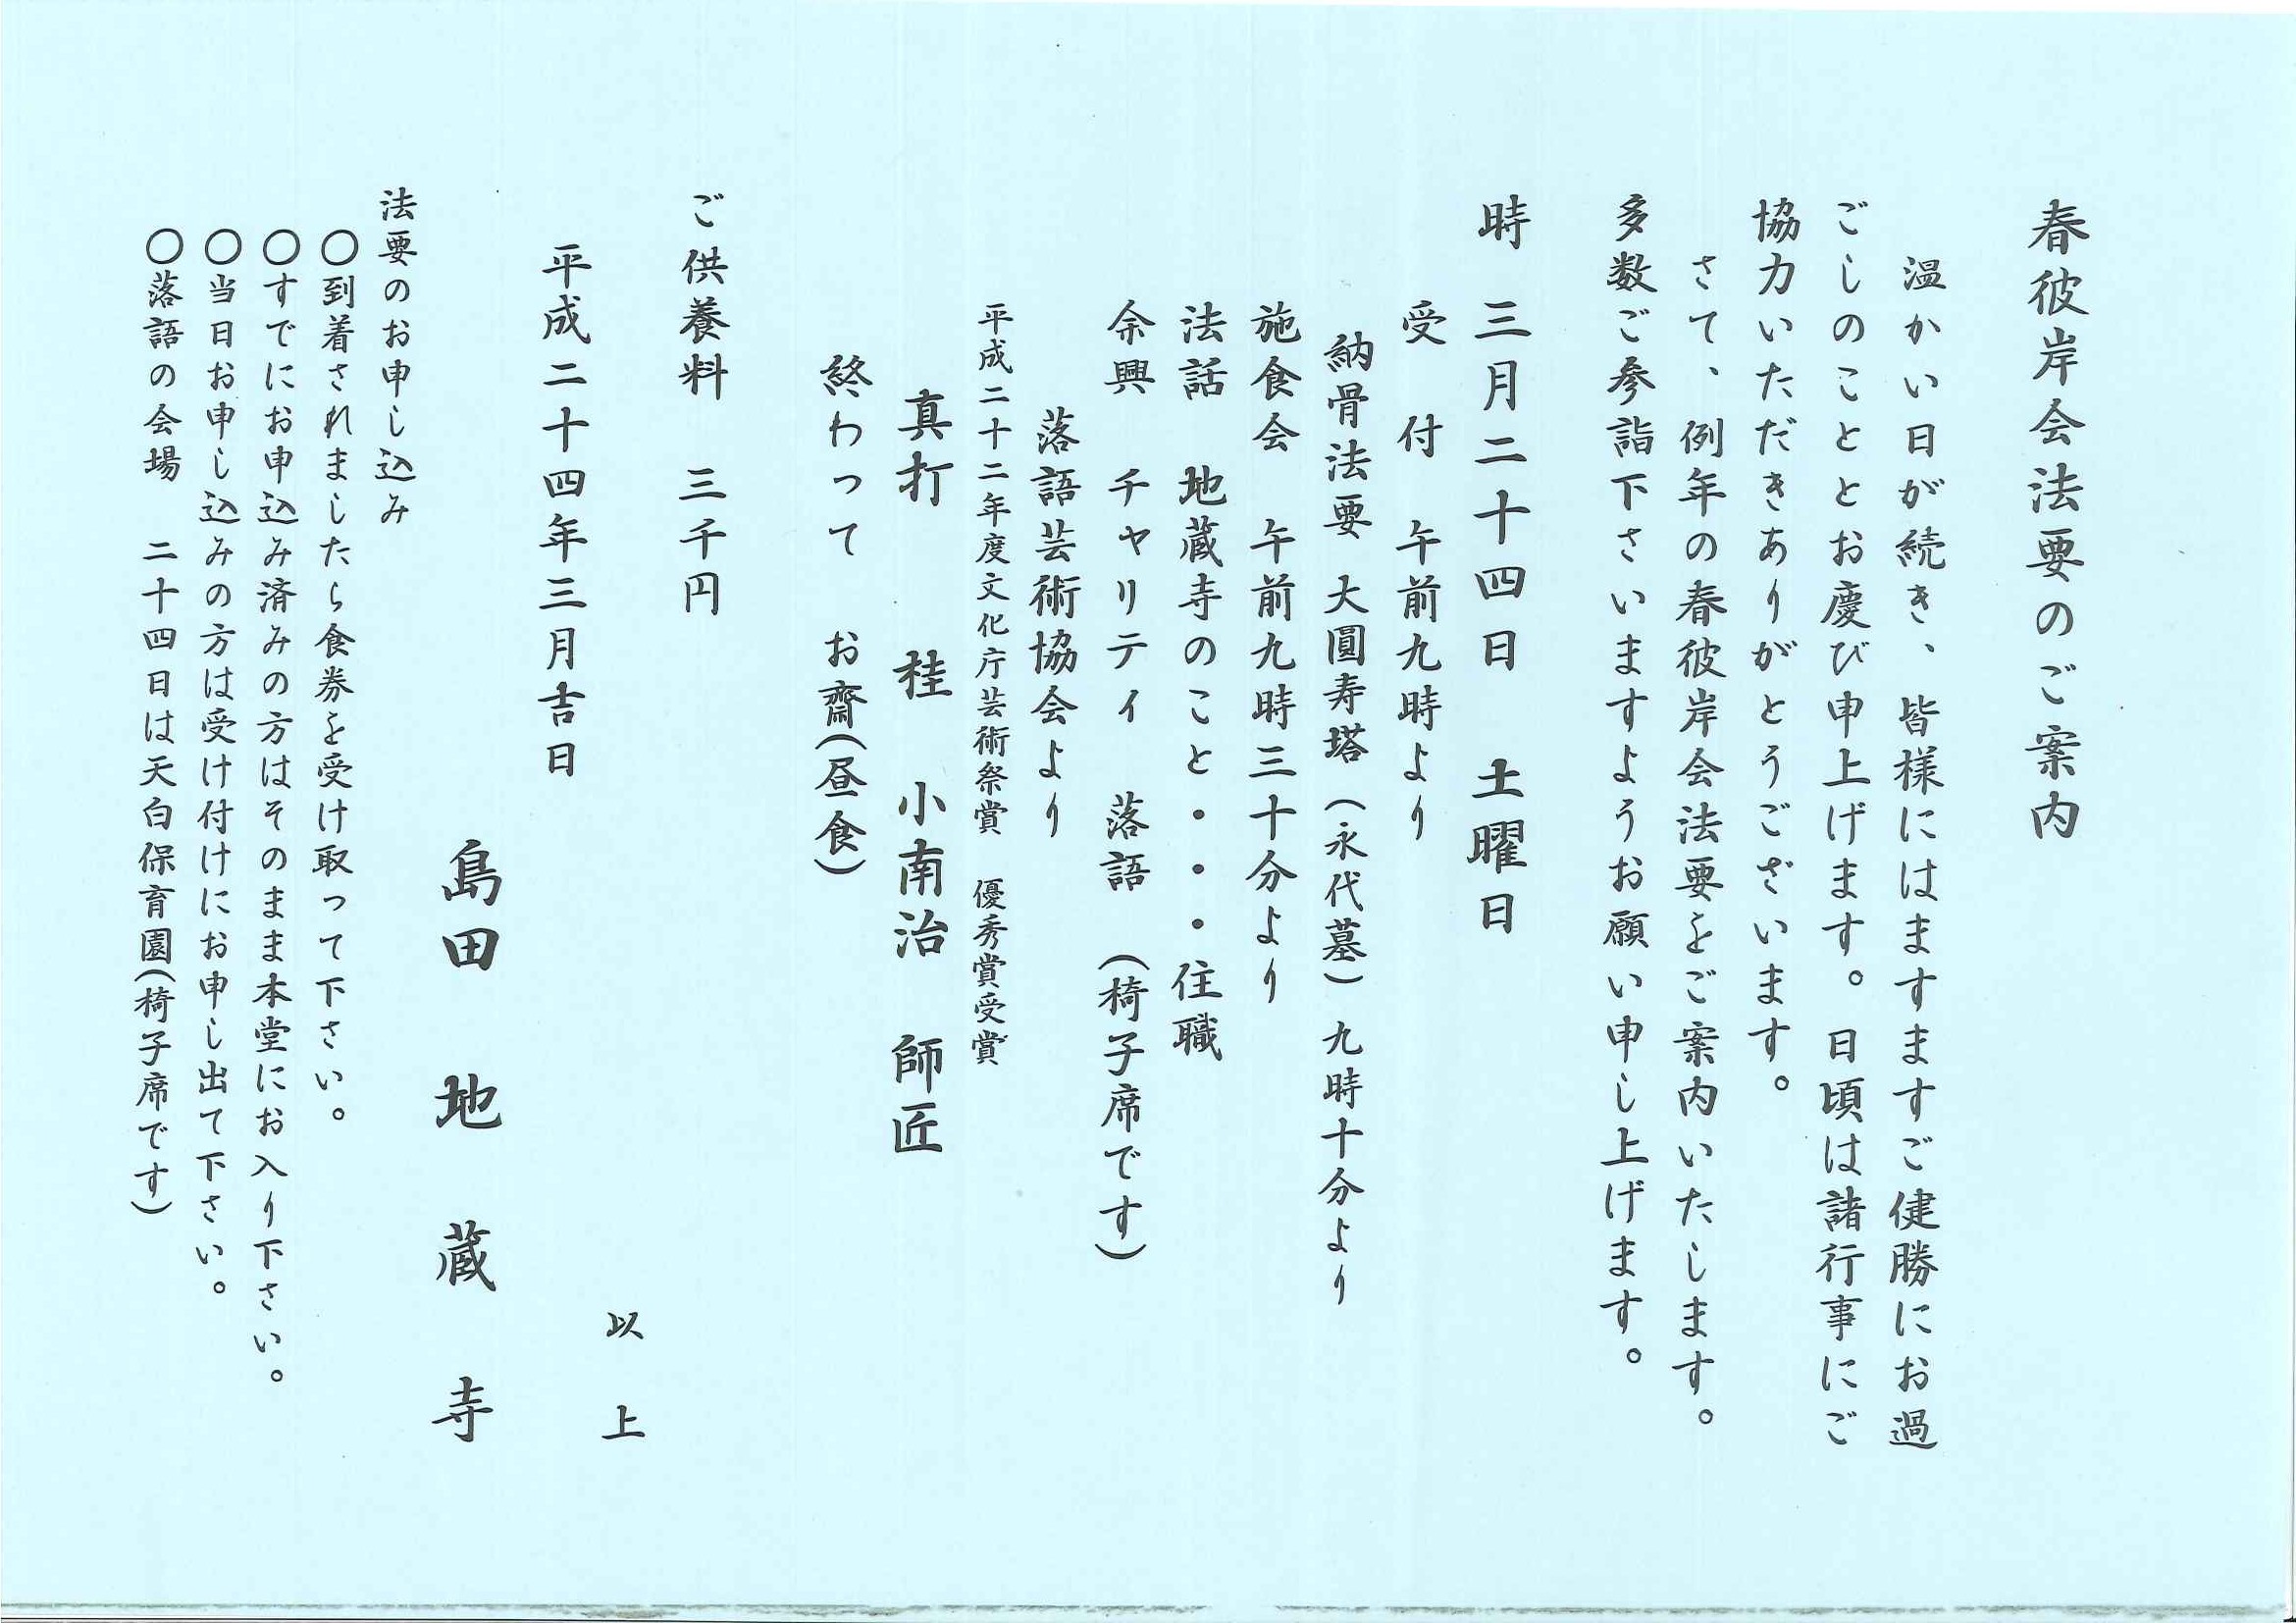 春彼岸会法要のご案内
温かい日が続き、皆様にはますますご健勝にお過
ごしのこととお慶び申上げます。日頃は諸行事にご
協力いただきありがとうございます。
さて、例年の春彼岸会法要をご案内いたします。
多数ご参詣下さいますようお願い申し上げます。
時 三月二十四日 土曜日
受付 午前九時より
納骨法要 大圓寿塔(永代墓)九時十分より
施食会 午前九時三十分より
法話 地蔵寺のこと・・・住職
余興 チャリティ 落語 (椅子席です)
落語芸術協会より
平成二十二年度文化庁芸術祭賞 優秀賞受賞
真打 桂 小南治 師匠
終わって お齋(昼食)
ご供養料 三千円
以上
平成二十四年三月吉日
島田 地蔵寺
法要のお申し込み
〇到着されましたら食券を受け取って下さい。
〇すでにお申込み済みの方はそのまま本堂にお入り下さい。
〇当日お申し込みの方は受け付けにお申し出て下さい。
〇落語の会場 二十四日は天白保育園(椅子席です)